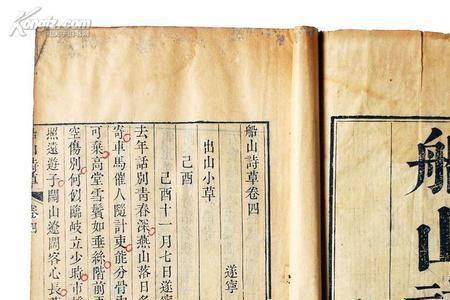 Kongfz.com
孔夫子旧书网
船山
船山詩草卷四
遂寧
出山小草
己酉
己酉十一月七日遂寧
去年話別青春深燕山落日
寄車馬催人隨計吏能分骨
可乗高堂雪鬢如垂絲階前
空傷別何似臨岐立少時市
照遠遊子關山遼闊客心長
船山詩草 卷四